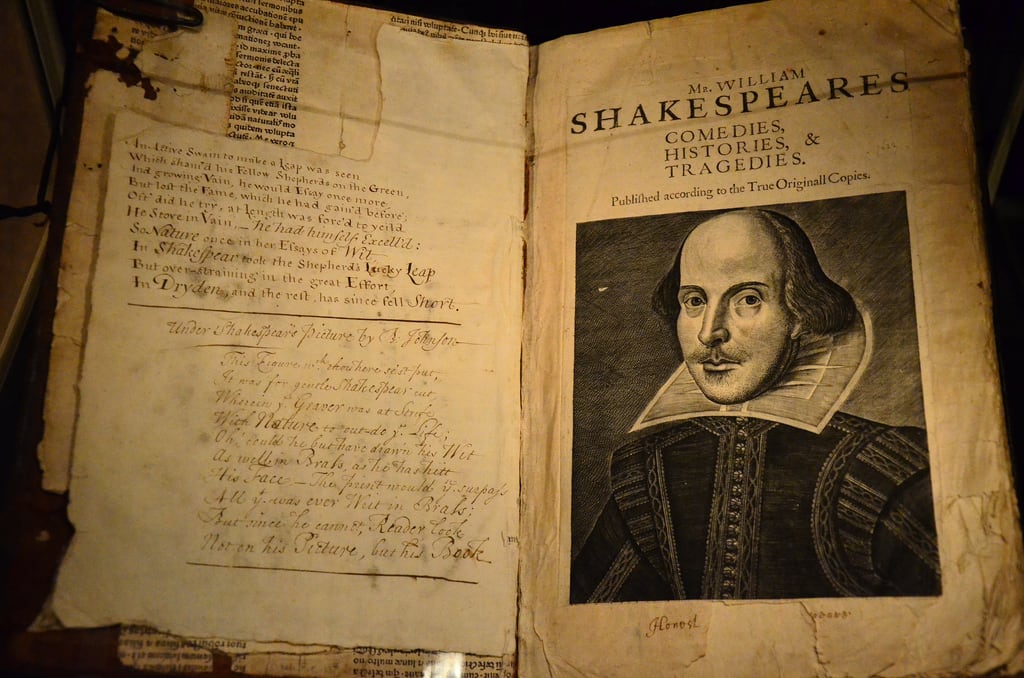 nationez vocant
id maxime
sermonis delecta
senectuti
auxit
videar
quidem volupta
nisi voluptate.
An Active Swain to make a Leap was seen
Which sham'd his Fellow Shepherds on the Green,
And growing Vain, he would Essay once more,
But lost the Fame, which he had gain'd before;
Oft' did he try, at Length was forc'd to yeild
He Strove in Vain,— he had himself Excell'd:
So Nature once in her Essays of Wit,
In Shakespear took the Shepherd's Lucky Leap
But over-straining in the great Effort,
In Dryden, and the rest, has since fell Short.
Under Shakespears Picture by B. Johnson
This Figure wch thou here se'st put,
It was for gentle Shakespear cut,
Wherein ye Graver was at Strife
With Nature to out-do ye Life;
Oh, could he but have drawn his Wit
As well in Brass, as he has hitt
His Face,— The print would yn surpass
All yt was ever Writ in Brass;
But since he cannot, Reader look
Not on his Picture, but his Book
Mr. WILLIAM
SHAKESPEARES
COMEDIES,
HISTORIES, &
TRAGEDIES.
Published according to the True Originall Copies.
Honest